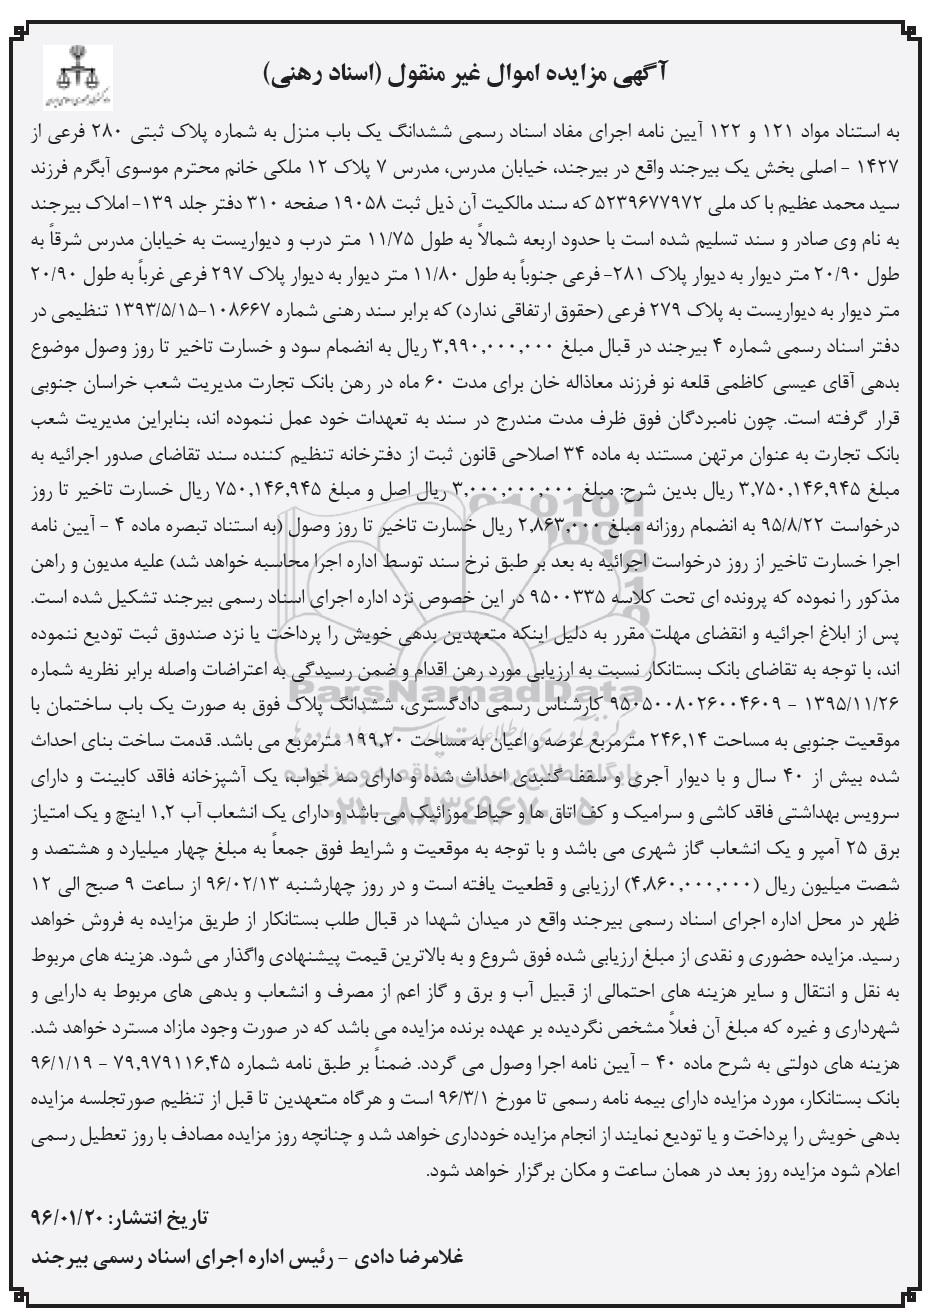 آگهی مزایده اموال غیر منقول (اسناد رهنی)
به استناد مواد ۱۲۱ و ۱۲۲ آیین نامه اجرای مفاد اسناد رسمی ششدانگ یک باب منزل به شماره پلاک ثبتی ۲۸۰ فرعی از
۱۴۲۷ - اصلی بخش یک بیرجند واقع در بیرجند، خیابان مدرس، مدرس ۷ پلاک ۱۲ ملکی خانم محترم موسوی آبگرم فرزند
سید محمد عظیم با کد ملی ۵۲۳۹۶۷۷۹۷۲ که سند مالکیت آن ذیل ثبت ۱۹۰۵۸ صفحه ۳۱۰ دفتر جلد ۱۳۹- املاک بیرجند
به نام وی صادر و سند تسلیم شده است با حدود اربعه شمالاً به طول ۱۱/۷۵ متر درب و دیواریست به خیابان مدرس شرقاً به
طول ۲۰/۹۰ متر دیوار به دیوار پلاک ۲۸۱- فرعی جنوباً به طول ۱۱/۸۰ متر دیوار به دیوار پلاک ۲۹۷ فرعی غرباً به طول ۲۰/۹۰
متر دیوار به دیواریست به پلاک ۲۷۹ فرعی (حقوق ارتفاقی ندارد) که برابر سند رهنی شماره ۱۰۸۶۶۷-۱۳۹۳/۵/۱۵ تنظیمی در
دفتر اسناد رسمی شماره ۴ بیرجند در قبال مبلغ ۳,۹۹۰,۰۰۰,۰۰۰ ریال به انضمام سود و خسارت تاخیر تا روز وصول موضوع
بدهی آقای عیسی کاظمی قلعه نو فرزند معاذاله خان برای مدت ۶۰ ماه در رهن بانک تجارت مدیریت شعب خراسان جنوبی
قرار گرفته است. چون نامبردگان فوق ظرف مدت مندرج در سند به تعهدات خود عمل ننموده اند، بنابراین مدیریت شعب
بانک تجارت به عنوان مرتهن مستند به ماده ۳۴ اصلاحی قانون ثبت از دفترخانه تنظیم کننده سند تقاضای صدور اجرائیه به
مبلغ ۳,۷۵۰,۱۴۶,۹۴۵ ریال بدین شرح: مبلغ ۳,۰۰۰,۰۰۰,۰۰۰ ریال اصل و مبلغ ۷۵۰,۱۴۶,۹۴۵ ریال خسارت تاخیر تا روز
درخواست ۹۵/۸/۲۲ به انضمام روزانه مبلغ ۲,۸۶۳,۰۰۰ ریال خسارت تاخیر تا روز وصول (به استناد تبصره ماده ۴ - آیین نامه
اجرا خسارت تاخیر از روز درخواست اجرائیه به بعد بر طبق نرخ سند توسط اداره اجرا محاسبه خواهد شد) علیه مدیون و راهن
مذکور را نموده که پرونده ای تحت کلاسه ۹۵۰۰۳۳۵ در این خصوص نزد اداره اجرای اسناد رسمی بیرجند تشکیل شده است.
پس از ابلاغ اجرائیه و انقضای مهلت مقرر به دلیل اینکه متعهدین بدهی خویش را پرداخت یا نزد صندوق ثبت تودیع ننموده
اند، با توجه به تقاضای بانک بستانکار نسبت به ارزیابی مورد رهن اقدام و ضمن رسیدگی به اعتراضات واصله برابر نظریه شماره
۱۳۹۵/۱۱/۲۶ - ۹۵۰۵۰۰۸۰۲۶۰۰۴۶۰۹ کارشناس رسمی دادگستری، ششدانگ پلاک فوق به صورت یک باب ساختمان با
ParsNamadData
موقعیت جنوبی به مساحت ۲۴۶,۱۴ مترمربع عرصه و اعیان به مساحت ۱۹۹,۲۰ مترمربع می باشد. قدمت ساخت بنای احداث
شده بیش از ۴۰ سال و با دیوار آجری و سقف گنبدی احداث شده و دارای سه خواب، یک آشپزخانه فاقد کابینت و دارای
سرویس بهداشتی فاقد کاشی و سرامیک و کف اتاق ها و حیاط موزائیک می باشد و دارای یک انشعاب آب ۱,۲ اینچ و یک امتیاز
برق ۲۵ آمپر و یک انشعاب گاز شهری می باشد و با توجه به موقعیت و شرایط فوق جمعاً به مبلغ چهار میلیارد و هشتصد و
شصت میلیون ریال (۴,۸۶۰,۰۰۰,۰۰۰) ارزیابی و قطعیت یافته است و در روز چهارشنبه ۹۶/۰۲/۱۳ از ساعت ۹ صبح الی ۱۲
ظهر در محل اداره اجرای اسناد رسمی بیرجند واقع در میدان شهدا در قبال طلب بستانکار از طریق مزایده به فروش خواهد
رسید. مزایده حضوری و نقدی از مبلغ ارزیابی شده فوق شروع و به بالاترین قیمت پیشنهادی واگذار می شود. هزینه های مربوط
به نقل و انتقال و سایر هزینه های احتمالی از قبیل آب و برق و گاز اعم از مصرف و انشعاب و بدهی های مربوط به دارایی و
شهرداری و غیره که مبلغ آن فعلاً مشخص نگردیده بر عهده برنده مزایده می باشد که در صورت وجود مازاد مسترد خواهد شد.
هزینه های دولتی به شرح ماده ۴۰ - آیین نامه اجرا وصول می گردد. ضمناً بر طبق نامه شماره ۷۹,۹۷۹۱۱۶,۴۵ - ۹۶/۱/۱۹
بانک بستانکار، مورد مزایده دارای بیمه نامه رسمی تا مورخ ۹۶/۳/۱ است و هرگاه متعهدین تا قبل از تنظیم صورتجلسه مزایده
بدهی خویش را پرداخت و یا تودیع نمایند از انجام مزایده خودداری خواهد شد و چنانچه روز مزایده مصادف با روز تعطیل رسمی
اعلام شود مزایده روز بعد در همان ساعت و مکان برگزار خواهد شود.
تاریخ انتشار: ۹۶/۰۱/۲۰
غلامرضا دادی - رئیس اداره اجرای اسناد رسمی بیرجند